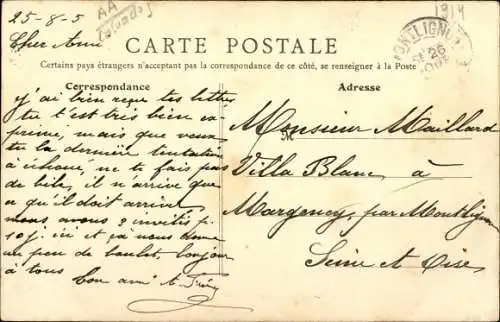 25-8-5
AA
1914
Cher Ami
CARTE POSTALE
Certains pays étrangers n'acceptant pas la correspondance de ce côté, se renseigner à la Poste
Correspondance
Adresse
MONTLIGNON
26
j'ai bien reçue tes lettres
tu t'est très bien ex
primé, mais que veux
tu la dernière tentation
à échoué, ne te fais pas
de bile, il n'arrive que
ce qu'il doit arrivé
nous avons 2 invités p.
ici et ça nous donne
un peu de boulot, bonjour
à tous
ton ami A.
M
Monsieur Maillard
Villa Blanc à
Margency, par Montlignon
Seine et Oise